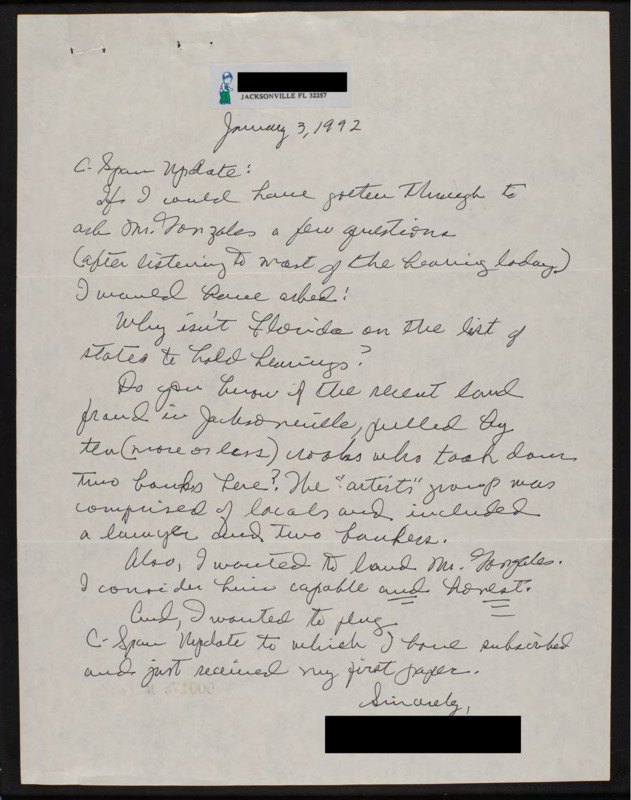 JACKSONVILLE FL 32257
January 3, 1992
C-Span Update:
If I could have gotten through to
ask Mr. Gonzales a few questions
(after listening to most of the hearing today)
I would have asked:
Why isn't Florida on the list of
states to hold hearings?
Do you know of the recent land
fraud in Jacksonville, pulled by
ten (more or less) crooks who took down
two banks here? The "artists" group was
comprised of locals and included
a lawyer and two bankers.
Also, I wanted to laud Mr. Gonzales.
I consider him capable and honest.
And, I wanted to plug
C-Span Update to which I have subscribed
and just received my first paper.
Sincerely,